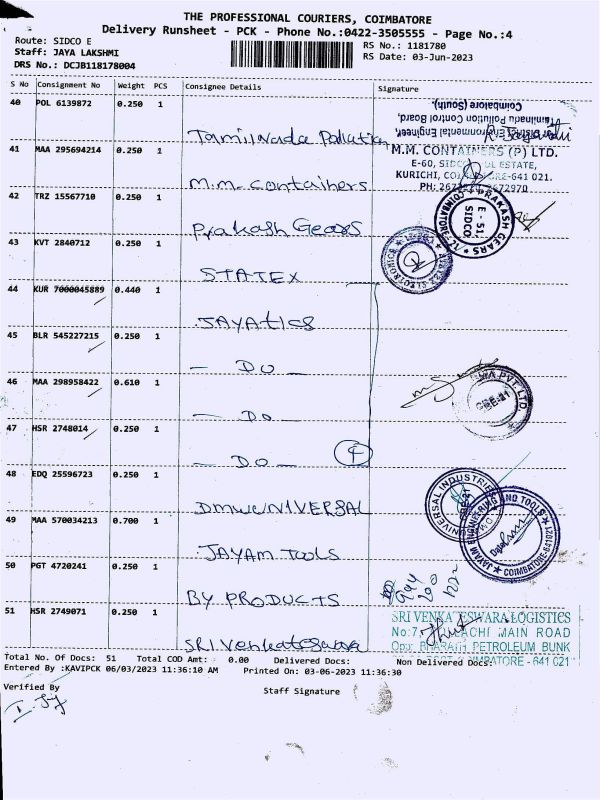 THE PROFESSIONAL COURIERS, COIMBATORE
Delivery Runsheet - PCK - Phone No.:0422-3505555 - Page No.:4
Route: SIDCO E
Staff: JAYA LAKSHMI
DRS No.: DCJB118178004
RS No.: 1181780
RS Date: 03-Jun-2023
S No Consignment No Weight PCS Consignee Details Signature
40 POL 6139872 0.250 1
Tamilnadu Pollution
Coimbatore (South).
Tamilnadu Pollution Control Board,
District Environmental Engineer,
41 MAA 295694214 0.250 1
M.m. containers
M.M. CONTAINERS (P) LTD.
E-60, SIDCO ESTATE,
KURICHI, 641 021.
PH: 2672970
42 TRZ 15567710 0.250 1
Prakash Gears
PRAKASH GEARS
E-51
SIDCO
COIMBATORE-21
43 KVT 2840712 0.250 1
STATEX
44 KUR 7000045889 0.440 1
JAYATICS
45 BLR 545227215 0.250 1
- DO -
46 MAA 298958422 0.610 1
- DO -
PVT LTD.
47 HSR 2748014 0.250 1
- DO - 4
48 EDQ 25596723 0.250 1
DMW UNIVERSAL
UNIVERSAL INDUSTRIES
49 MAA 570034213 0.700 1
JAYAM TOOLS
JAYAM ENGINEERING AND TOOLS
COIMBATORE-641021
50 PGT 4720241 0.250 1
BY PRODUCTS
51 HSR 2749071 0.250 1
SRI Venkateswara
SRI VENKATESWARA LOGISTICS
No:7, MAIN ROAD
Opp: BHARATH PETROLEUM BUNK
COIMBATORE - 641 021
Total No. Of Docs: 51 Total COD Amt: 0.00 Delivered Docs: Non Delivered Docs:
Entered By :KAVIPCK 06/03/2023 11:36:10 AM Printed On: 03-06-2023 11:36:30
Verified By
Staff Signature